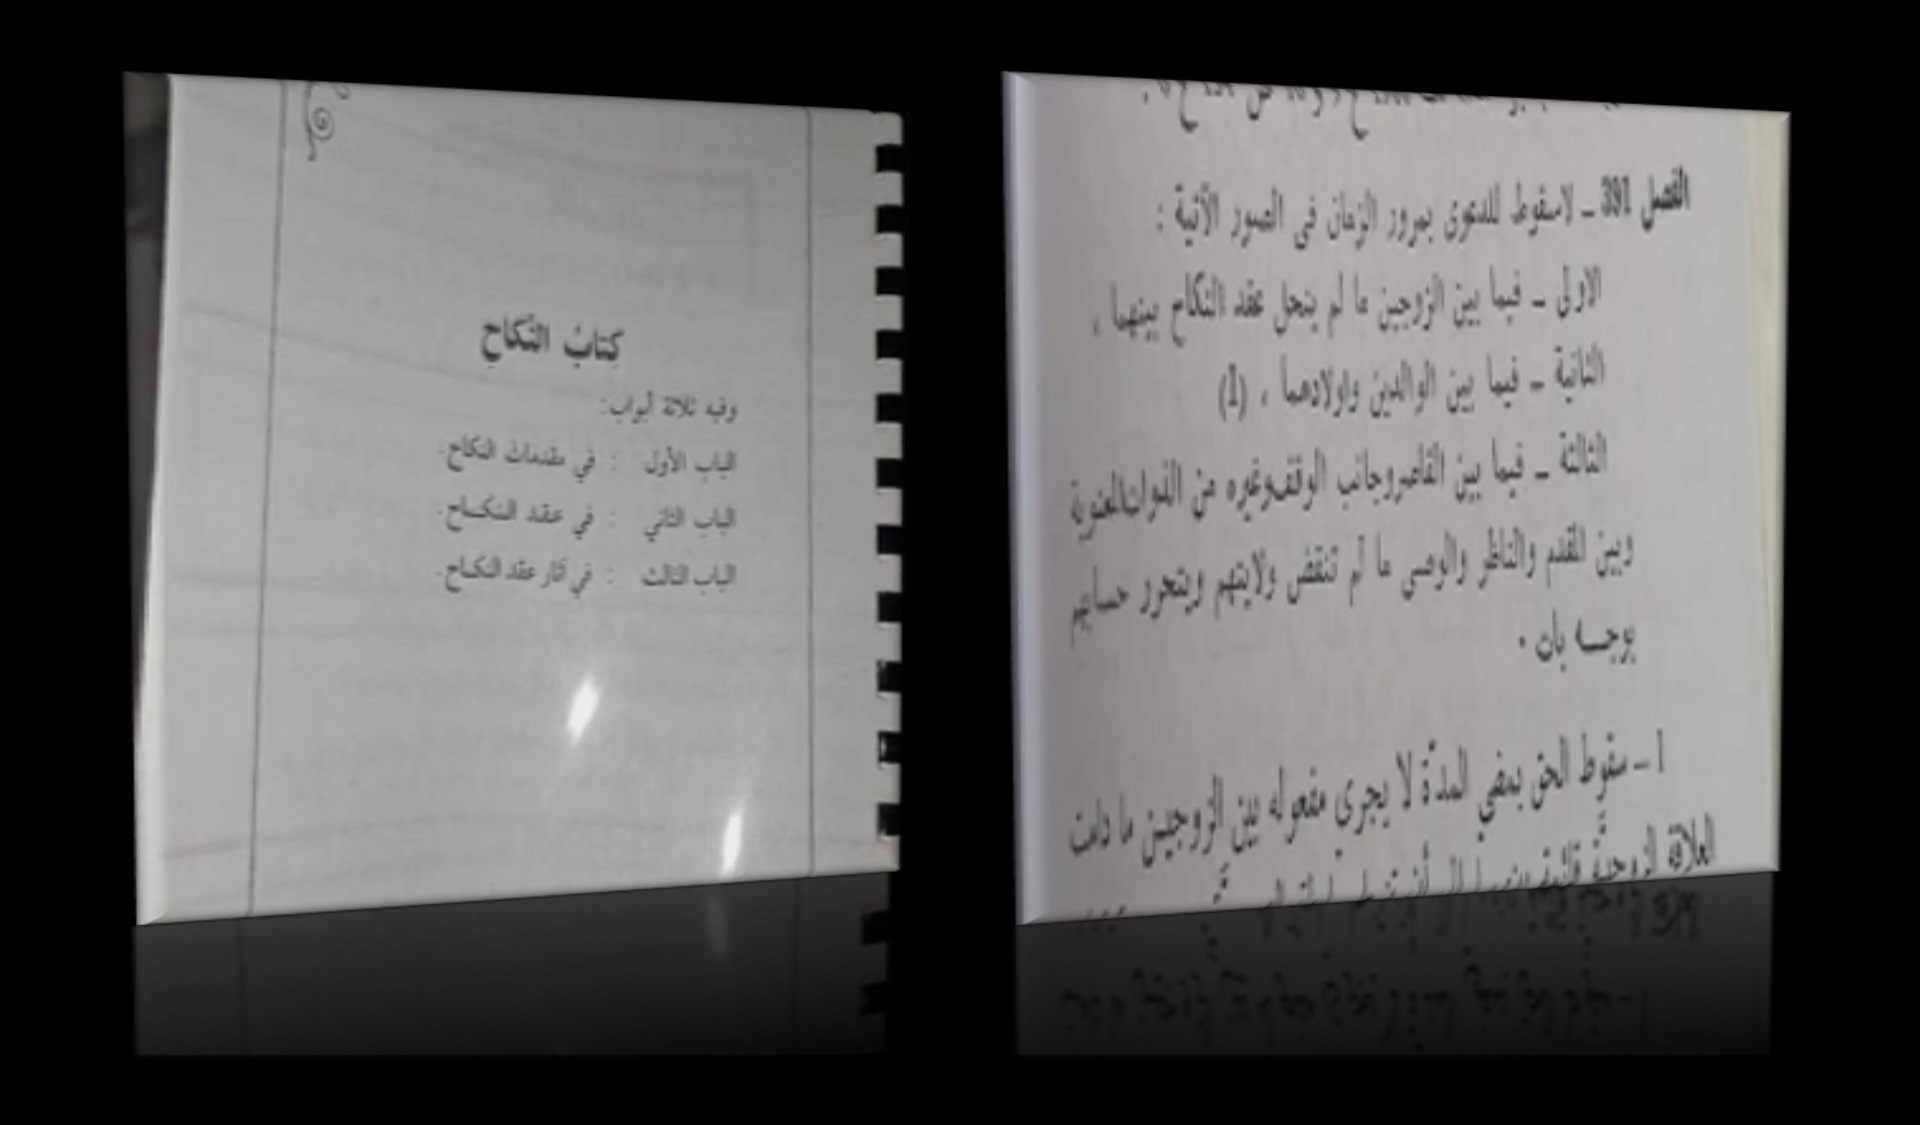 كتابُ النِّكَاحِ
وفيه ثلاثة أبواب:
الباب الأول : في مقدمات النكاح.
الباب الثاني : في عـقـد النـكــاح.
الباب الثالث : في آثار عقد النكـاح.
الفصل 391 ـ لاسقوط للدعوى بمرور الزمان فى الصور الآتية :
الاولى ـ فيما بين الزوجين ما لم ينحل عقد النكاح بينهما ،
الثانية ـ فيما بين الوالدين واولادهما ، (1)
الثالثة ـ فيما بين القاصروجانب الوقفوغيره من الذواتالمعنوية
وبين المقدم والناظر والوصى ما لم تنقض ولايتهم ويتحرر حسابهم
بوجـــه بات .
1 ـ سقوط الحق بمضي المدّة لا يجري مفعوله بين الزوجيـن ما دامت
العلاقة الزوجيّة قائمة